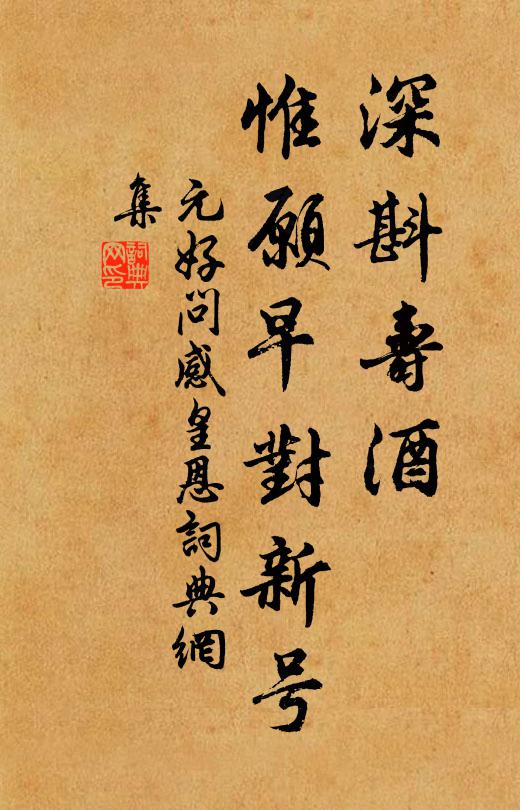 深斟壽酒
惟願早對新号
元好問感皇恩詞典網
集
詞典
网印